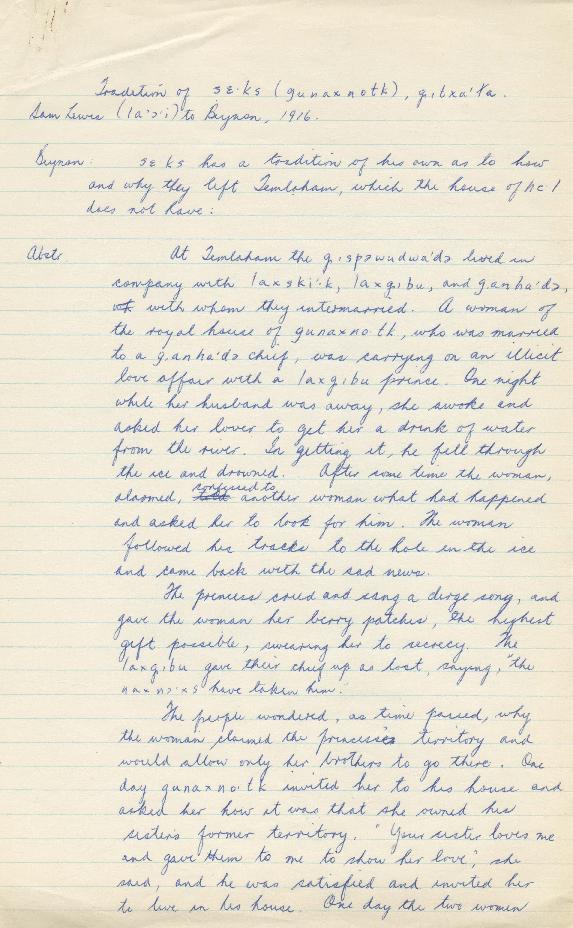 Tradition of sɛ·ks (gunaxnotk), g̣ıtxa'ła.
Sam Lewis (la'ɔ'i) to Beynon, 1916.
Beynon: sɛ·ks has a tradition of his own as to how
and why they left Temlaham, which the house of
does not have:
Abstr At Temlaham the g̣ıspəwudwa'də lived in
company with laxski·'k, laxg̣ıbu, and g̣anha'də,
with whom they intermarried. A woman of
the royal house of gunaxno·tk, who was married
to a g̣anha'də chief, was carrying on an illicit
love affair with a laxg̣ıbu prince. One night
while her husband was away, she awoke and
asked her lover to get her a drink of water
from the river. In getting it, he fell through
the ice and drowned. After some time the woman,
alarmed, confessed to another woman what had happened
and asked her to look for him. The woman
followed his tracks to the hole in the ice
and came back with the sad news.
The princess cried and sang a dirge song, and
gave the woman her berry patches, the highest
gift possible, swearing her to secrecy. The
laxg̣ıbu gave their chief up as lost, saying, "the
naxnɔ·xs have taken him."
The people wondered, as time passed, why
the woman claimed the princess's territory and
would allow only her brothers to go there. One
day gunaxno·tk invited her to his house and
asked her how it was that she owned his
sister's former territory. "Your sister loves me
and gave them to me to show her love", she
said, and he was satisfied and invited her
to live in his house. One day the two women